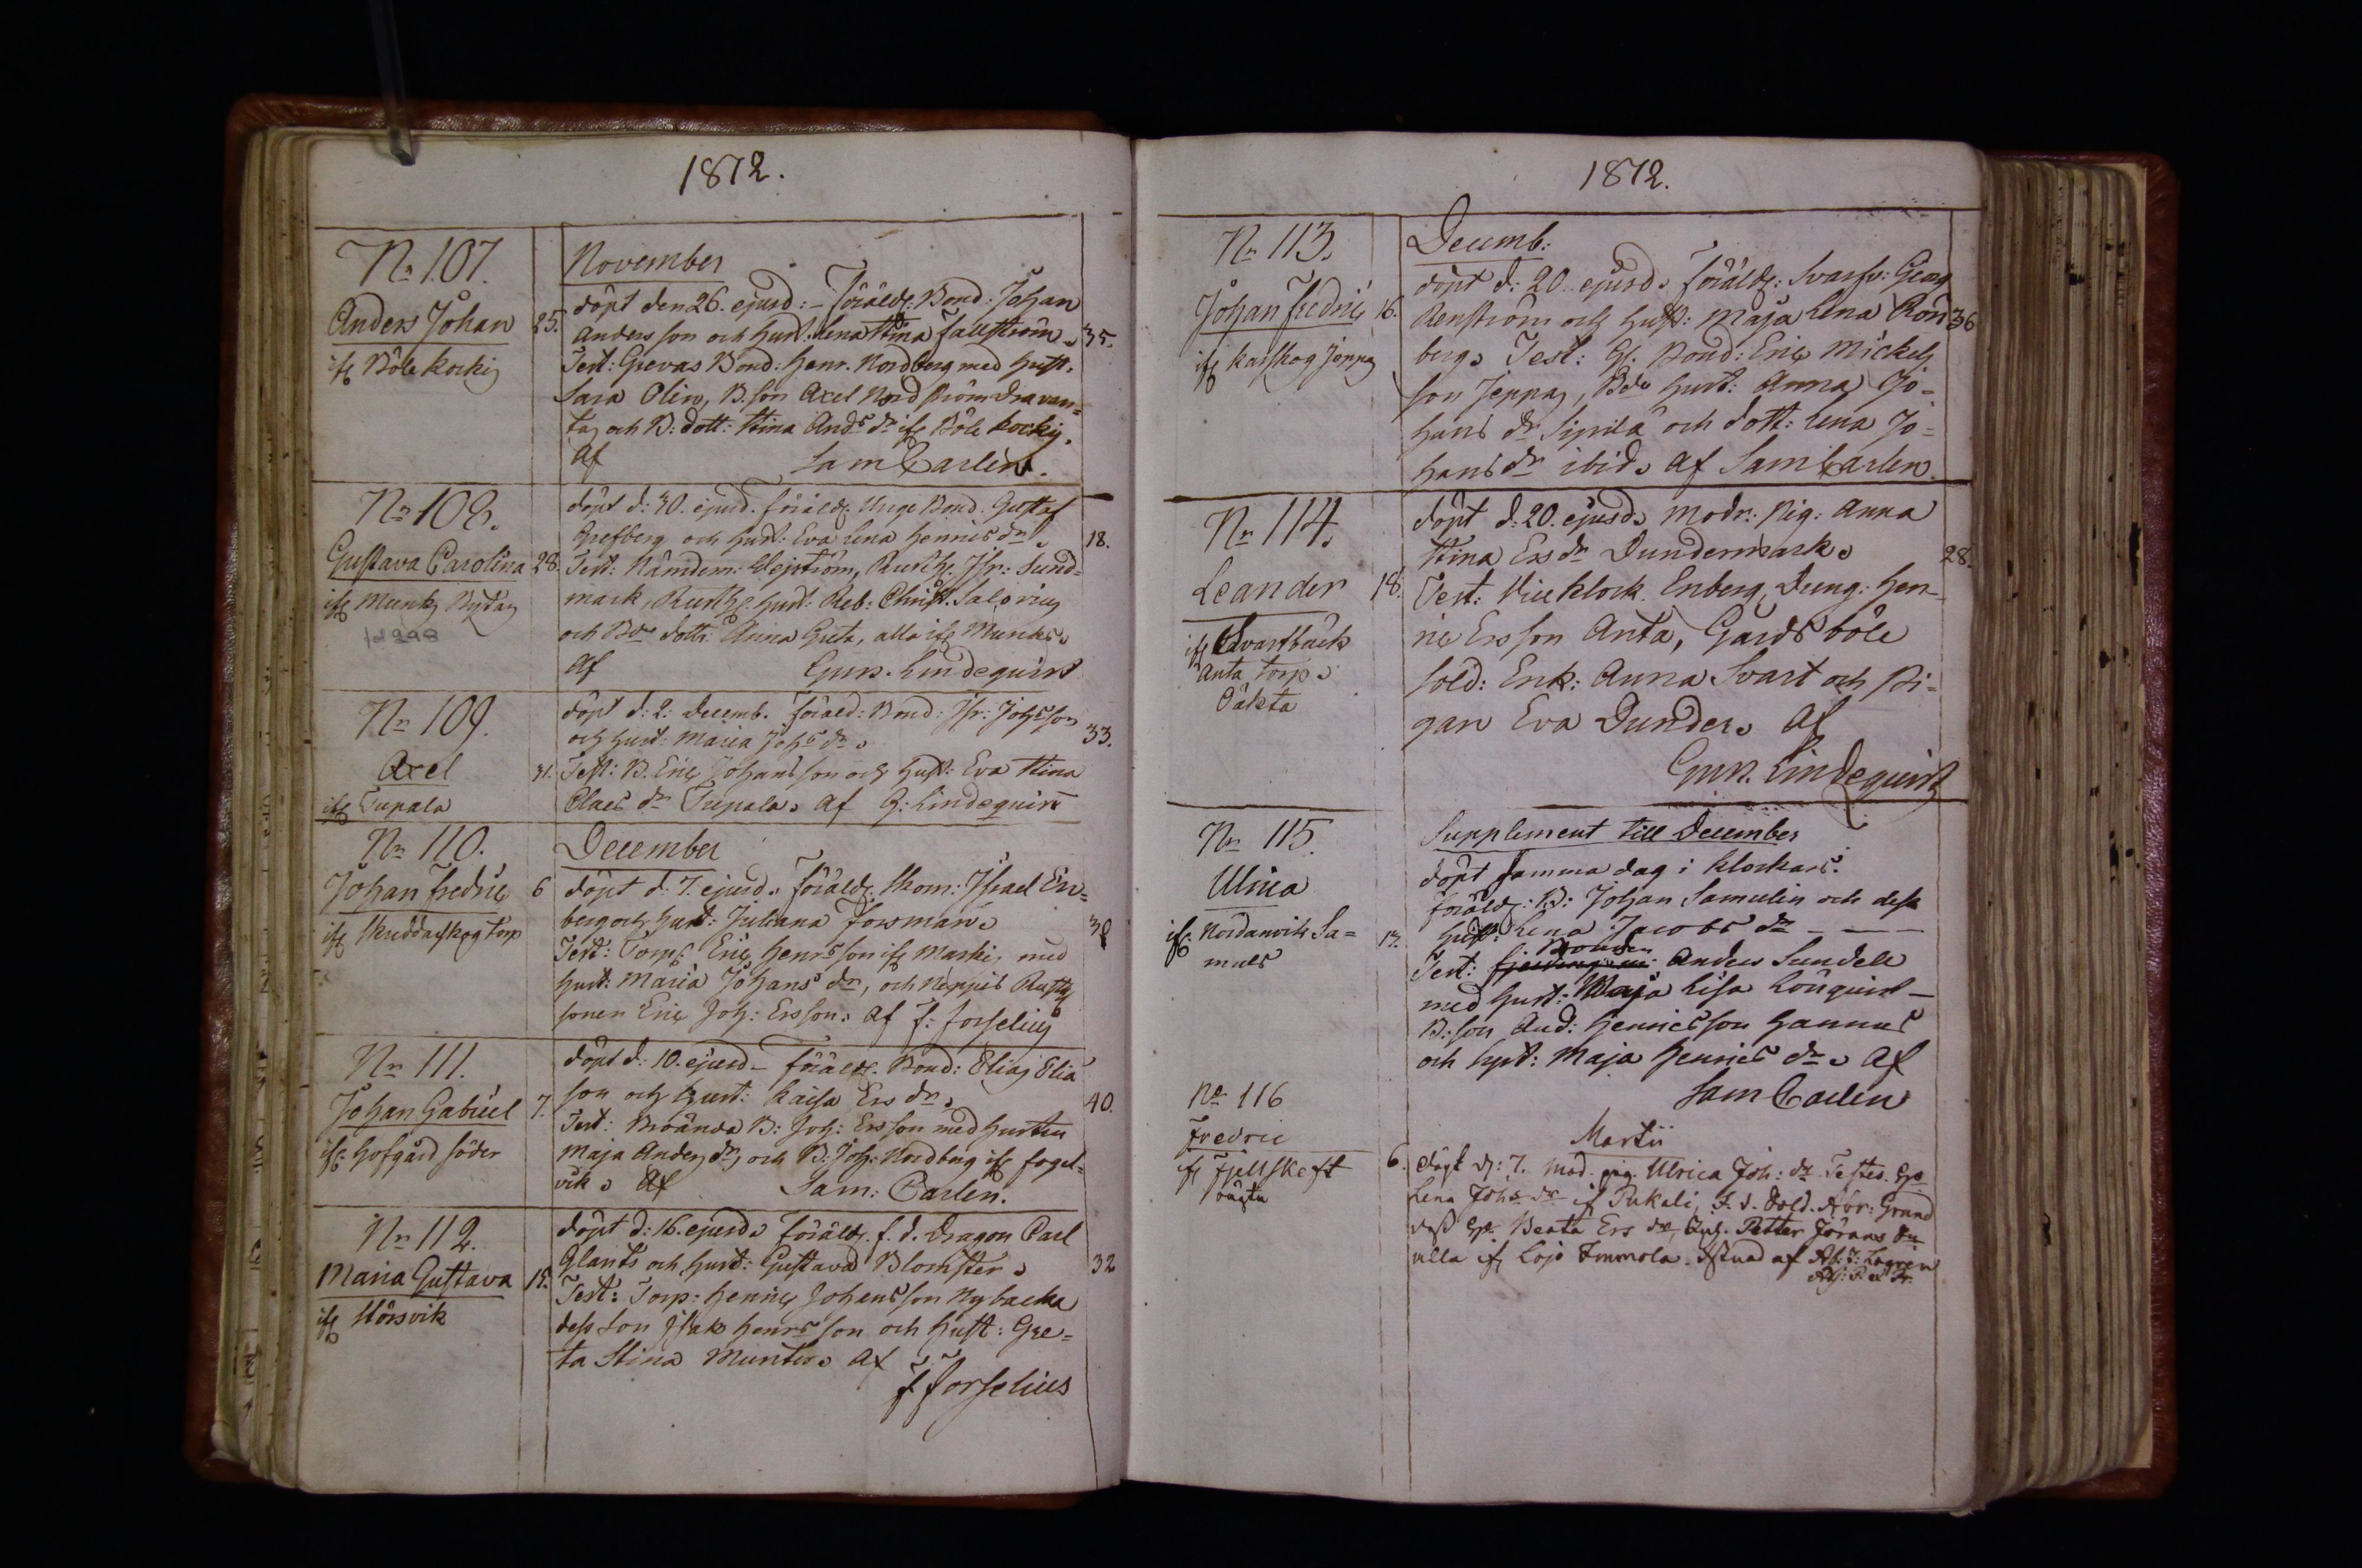 1812.
No 107.
Anders Johan
ifr Böle Kockis
25.
November
döpt den 26. ejusd: - föräldr. Bond: Johan
Anders son och hust. Lena Stina Fallström.
35.
Test: Grevas Bond: Henr. Nordberg med hust.
Sara Olin, B. son Axel Nordström Dravan=
tas och B: dott: Stina Ands dr ifr Böle Kockis.
Af Sam Carlen.
No 108.
Gustava Carolina
ifr Munks Nystag
28.
döpt d: 30. ejusd. föräldr. Unge Bond. Gustaf
Grefberg och hust: Eva Lena Henrics dr.
18.
Test: Nämdem: Wejström, Rusth. Isr: Sund=
mark, Rusth. hust: Reb: Christ. Salonius
och Bde dottr: Anna Greta, alla ifr Munks.
Af Gust. Lindequist
No 109.
Axel
ifr Tupala
31.
döpt d: 2: Decemb. föräld: Bond: Isr: Johsson
och hust: Maria Johs dr.
33.
Test: B. Eric Johansson och hust: Eva Stina
Claes dr Tupala. Af G: Lindequist
No 110.
Johan Fredric
ifr Skräddarskog torp
6
December
döpt d: 7. ejusd. föräldr. Skom: Israel En=
berg och hust: Juliana Forsman.
38
Test: Torp: Eric Henrsson ifr Maskis med
hust: Maria Johans dr, och Neppis Rusth.
sonen Eric Joh: Ersson. Af F: Forselius
No 111.
Johan Gabriel
ifr Hofgård söder
7.
döpt d: 10. ejusd - föräldr. Bond: Elias Elia
son och hust: Kaisa Ers dr.
40.
Test: Broända B: Joh: Ersson med hustru
Maja Anders dr, och B: Joh: Nordberg ifr Fogel=
vik. Af Sam: Carlen.
No 112.
Maria Gustava
ifr Störsvik
15.
döpt d: 16. ejusd. föräldr. f. d. Dragon Carl
Glants och hust: Gustava Blomster.
32
Test: Torp: Henric Johansson Nybacka
dess son Isak Henrsson och hust: Gre=
ta Stina Munter. Af
F Forselius
1812.
No 113.
Johan Fredric
ifr Karskog Jeppas
16.
Decemb:
döpt d: 20. ejusd. föräldr: Svarfv: Georg
Renström och hust: Maja Lena Rön
36
berg. Test: Gl. Bond: Eric Mickels
son Jeppas, Bde hust: Anna Jo=
hans dr Sipilä och dott: Lena Jo=
hans dr ibid. Af Sam Carlen.
No 114.
Leander
ifr Svartbäck
Anta torp.
Oäkta
18.
döpt d: 20. ejusd. Modr: Pig: Anna
Stina Ers dr Dundermark.
28.
Test: Vice Klock. Enberg, Dreng: Hen-
ric Ersson Anta, Gårdsböle
sold: Enk: Anna Svart och Pi=
gan Eva Dunder. Af
Gust. Lindequist
No 115.
Ulrica
ifr Nordanvik Sa=
muls
13.
Supplement till December
döpt samma dag i Klockars.
föräldr: B: Johan Samulin och dess
hust: Lena Jacobs dr - - -
Bonden
Test: Anders Sundell
med hust: Maja Lisa Lönquist -
B: son And: Henricsson Hannus
och hust: Maja Henrics dr. Af
Sam Carlen
No 116
Fredric
ifr Fjellskeft
oägta
6.
Martii
döpt d: 7. Mod. pig. Ulrica Joh: dr Testes
Lena Johs dr if Pukali, F. d. Sold. Abr: Grund
dess Beata Ers dr, Petter Jörans
alla if Lojo Immola. af Ab: J: Lagren